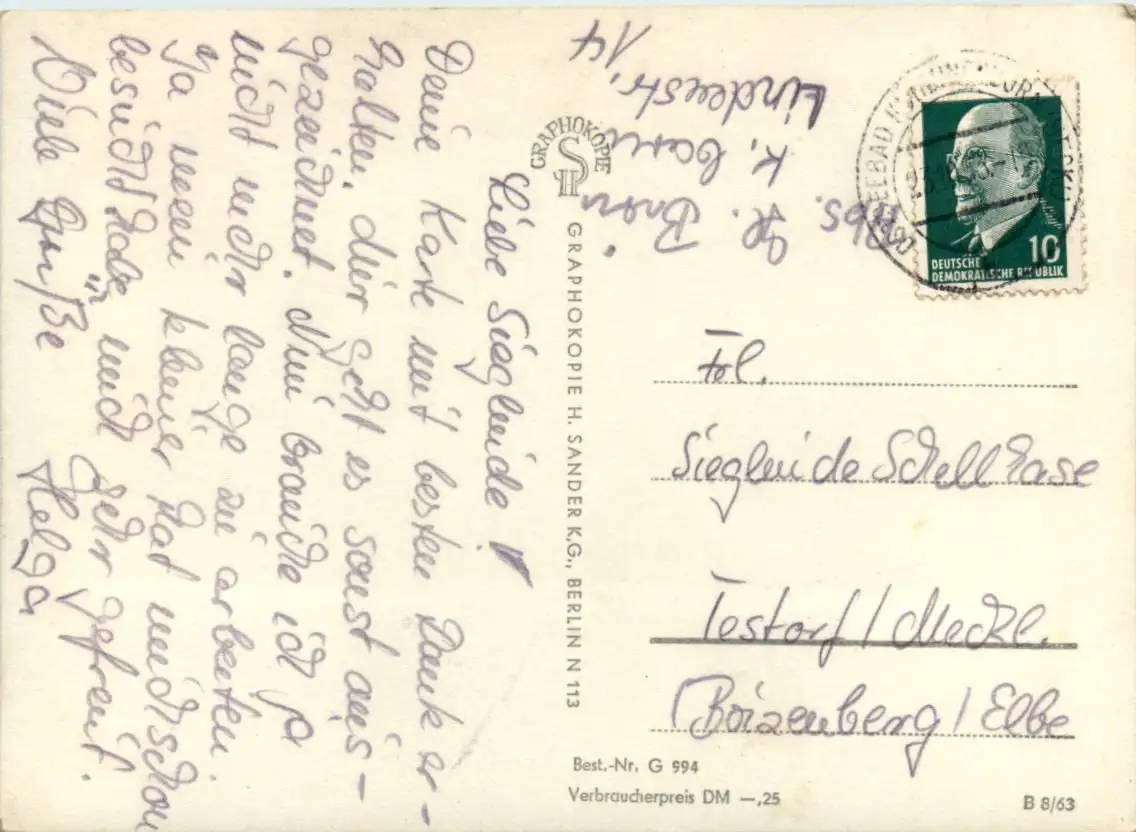 Liebe Sieglinde!
Deine Karte mit besten Dank er-
halten, mir geht es sonst aus-
gezeichnet. Nun brauche ich ja
nicht mehr lange zu arbeiten.
Ja mein kleiner hat mich schon
besucht habe mich sehr gefreut.
Viele Grüße
Helga
Abs.
Lindenstr.
14
GRAPHOKOPIE
GRAPHOKOPIE H. SANDER K.G., BERLIN N 113
OSTSEEBAD
DEUTSCHE
DEMOKRATISCHE REPUBLIK
10
Frl.
Sieglinde Schellhase
Testorf / Meckl.
(Boizenberg / Elbe
Best.-Nr. G 994
Verbraucherpreis DM —,25
B 8/63